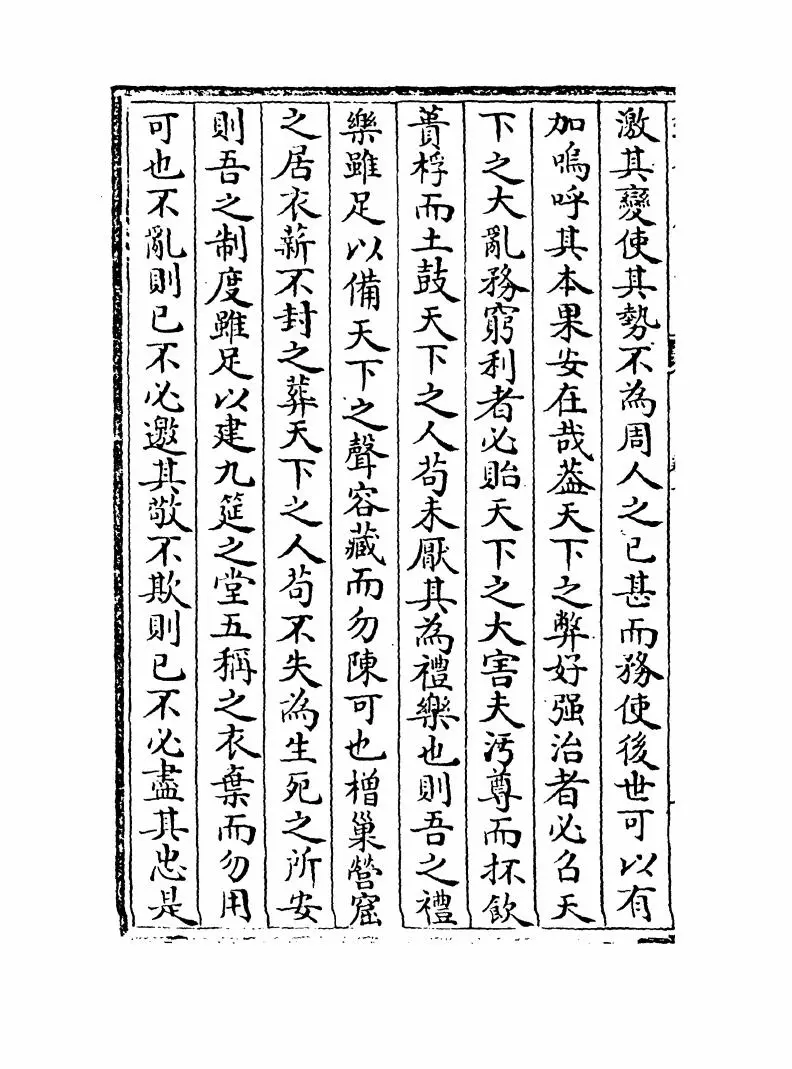 激其變使其勢不為周人之已甚而務使後世可以有
加嗚呼其本果安在哉葢天下之弊好强治者必召天
下之大亂務窮利者必貽天下之大害夫汚尊而抔飲
蕢桴而土鼓天下之人茍未厭其為禮樂也則吾之禮
樂雖足以備天下之聲容藏而勿陳可也橧巢營窟
之居衣薪不封之葬天下之人茍不失為生死之所安
則吾之制度雖足以建九筵之堂五稱之衣棄而勿用
可也不亂則已不必邀其敬不欺則已不必盡其忠是